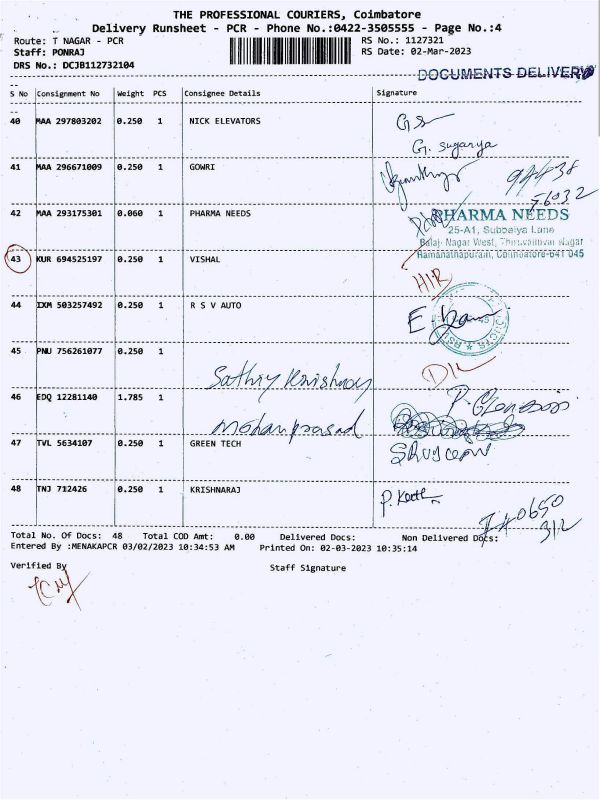 THE PROFESSIONAL COURIERS, Coimbatore
Delivery Runsheet - PCR - Phone No.:0422-3505555 - Page No.:4
Route: T NAGAR - PCR RS No.: 1127321
Staff: PONRAJ RS Date: 02-Mar-2023
DRS No.: DCJB112732104
DOCUMENTS DELIVERY
S No Consignment No Weight PCS Consignee Details Signature
40 MAA 297803202 0.250 1 NICK ELEVATORS
G. suganya
41 MAA 296671009 0.250 1 GOWRI
94438
56032
42 MAA 293175301 0.060 1 PHARMA NEEDS PHARMA NEEDS
25-A1, Subbaiya Lane
Balaji Nagar West, Thiruvalluvar Nagar
Ramanathapuram, Coimbatore-641 045
43 KUR 694525197 0.250 1 VISHAL
44 IXM 503257492 0.250 1 R S V AUTO
45 PNU 756261077 0.250 1
D/L
46 EDQ 12281140 1.785 1
Mohanprasad
47 TVL 5634107 0.250 1 GREEN TECH
48 TNJ 712426 0.250 1 KRISHNARAJ
Total No. Of Docs: 48 Total COD Amt: 0.00 Delivered Docs: Non Delivered Docs:
Entered By :MENAKAPCR 03/02/2023 10:34:53 AM Printed On: 02-03-2023 10:35:14
Verified By Staff Signature